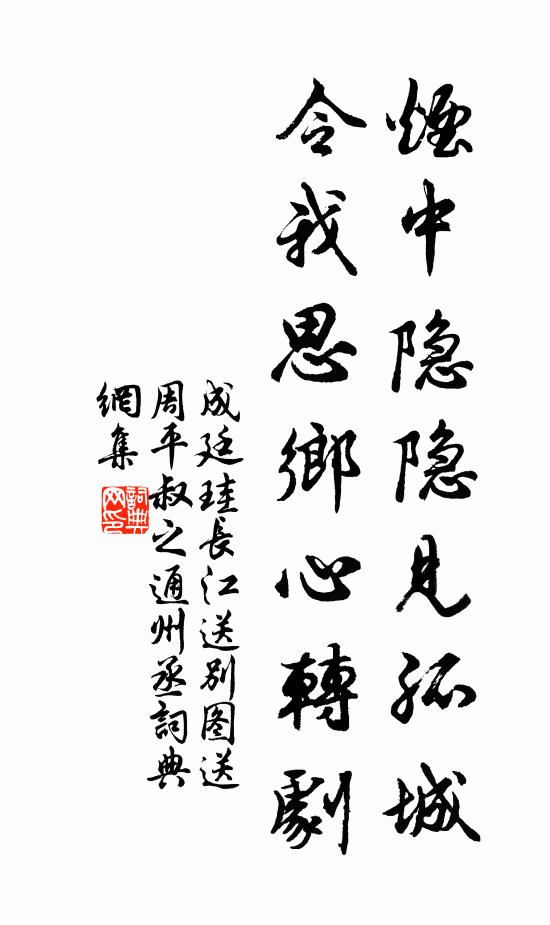 煙中隐隐見孤城
令我思鄉心轉劇
成廷珪長江送別图送
周平叔之通州丞詞典
網集
詞典
网印